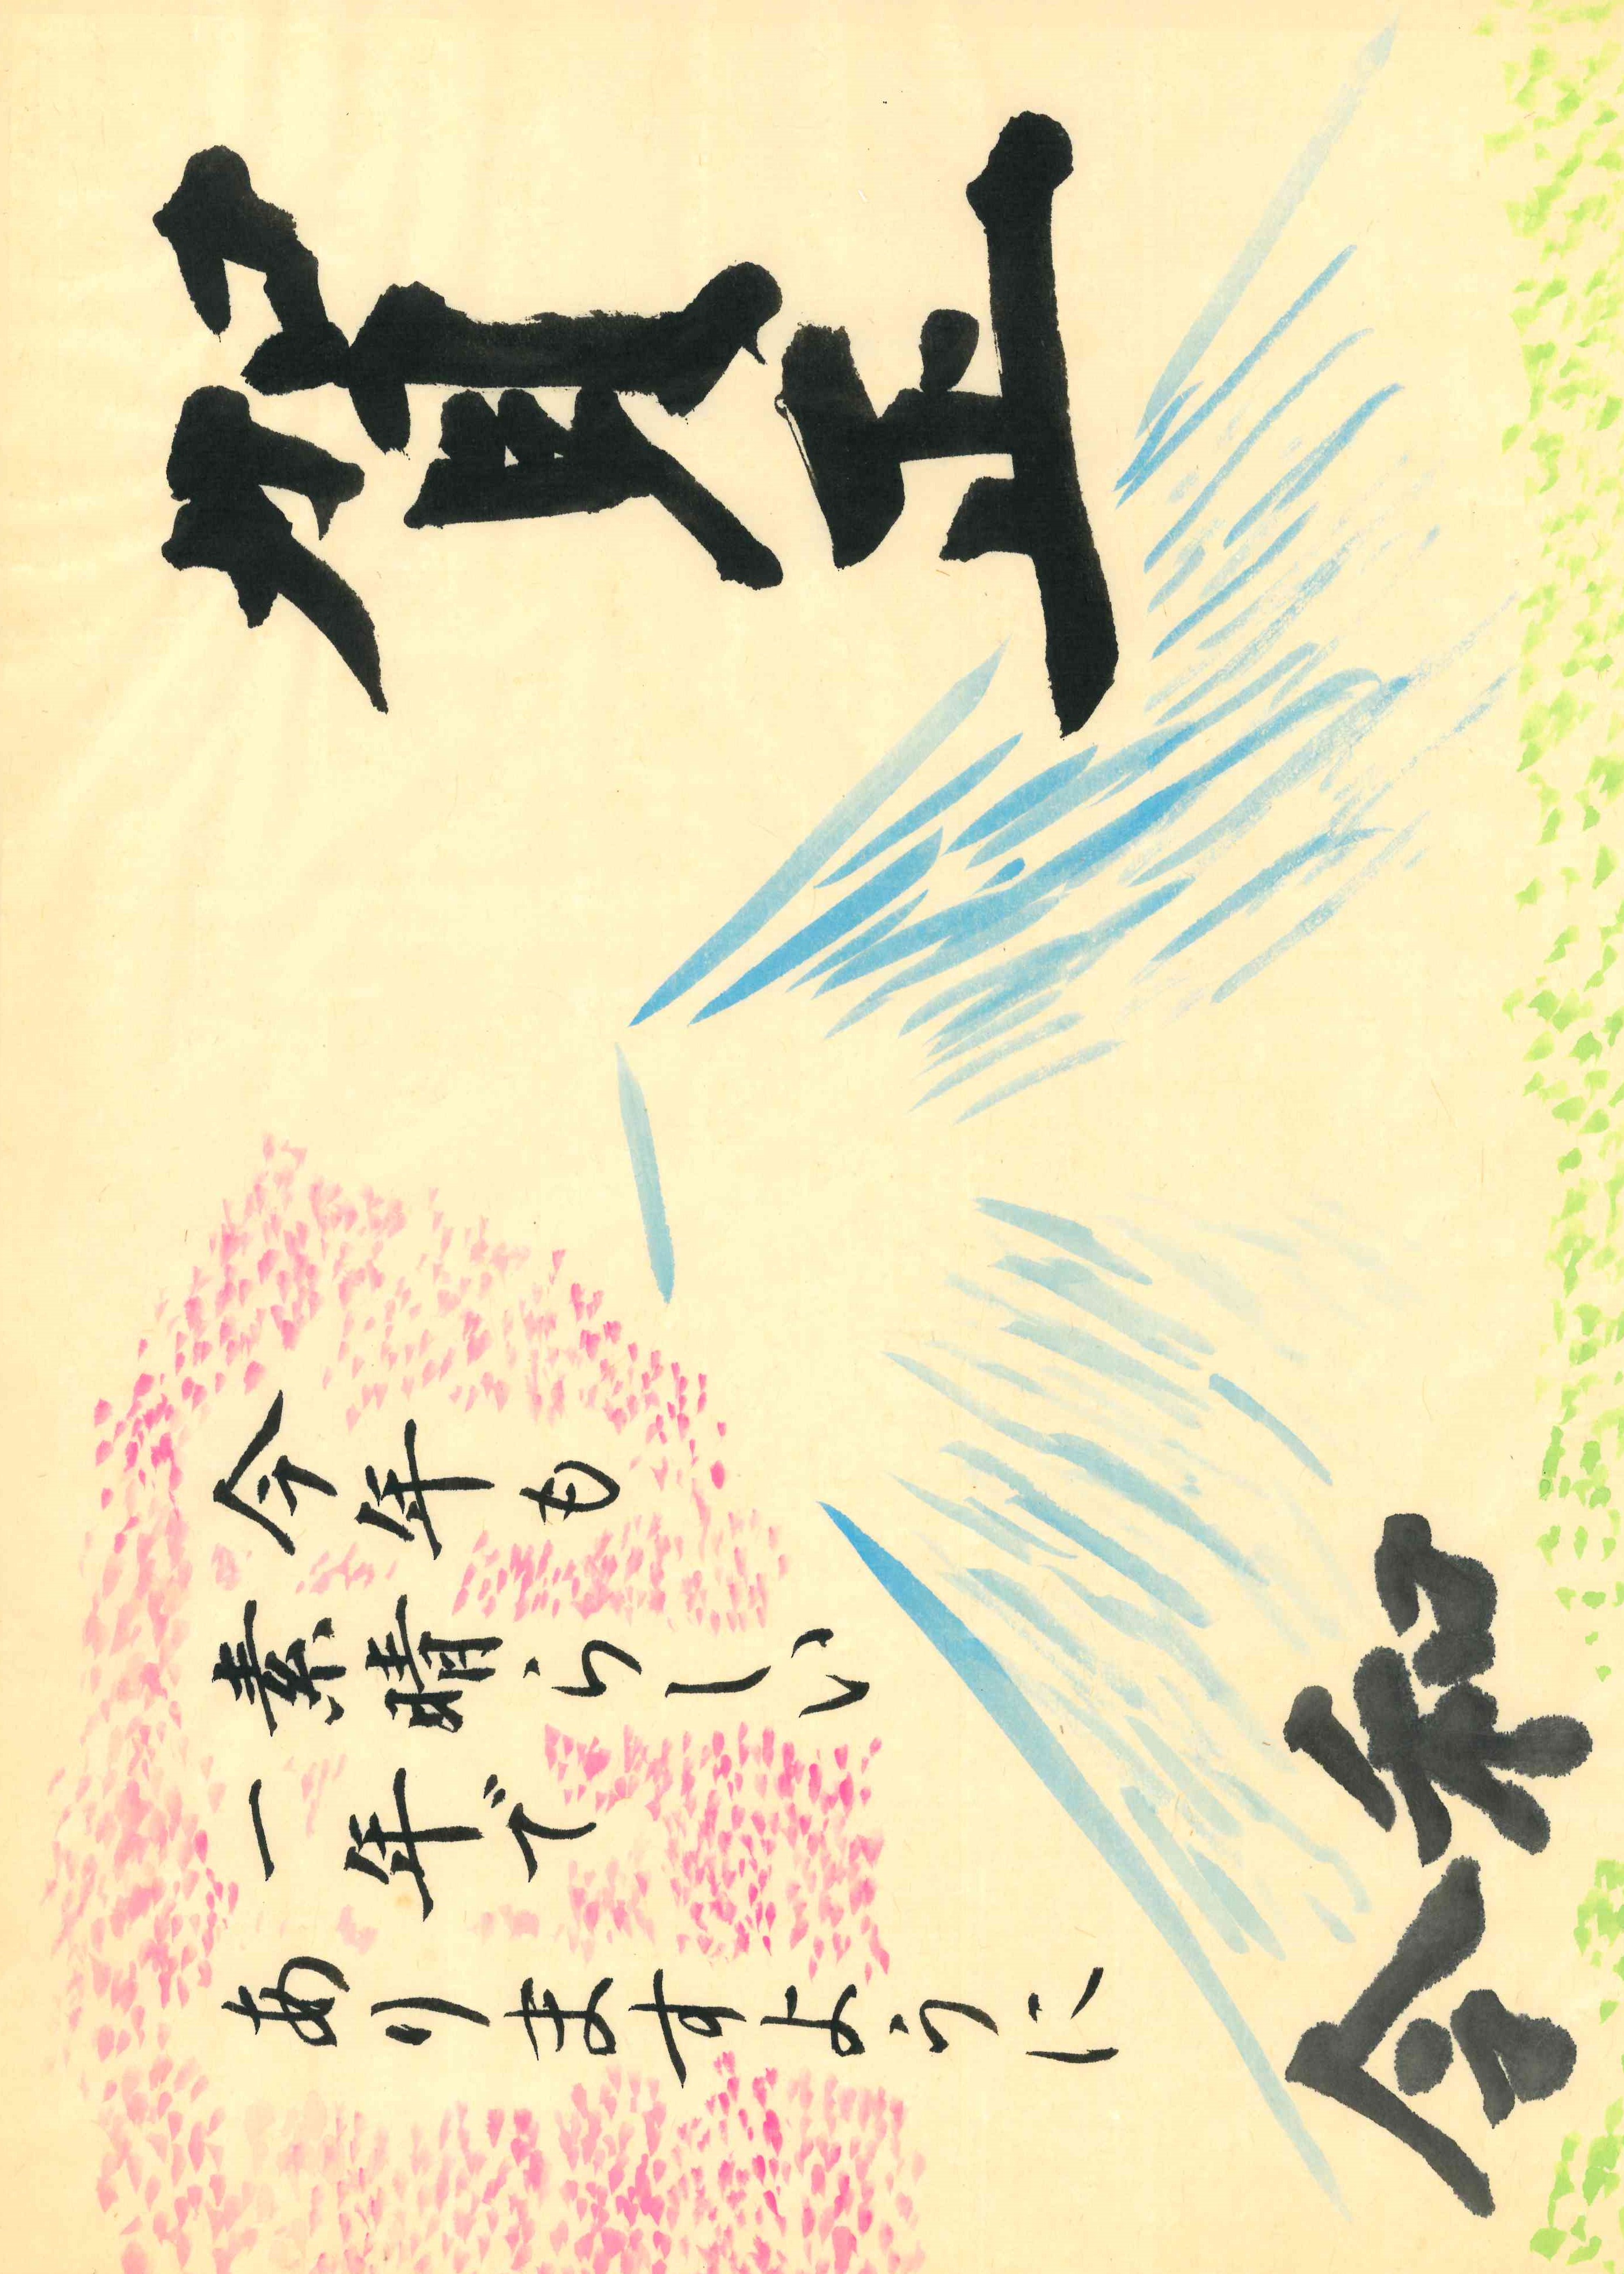 賀正
今年も
素晴らしい
一年で
ありますように
令和